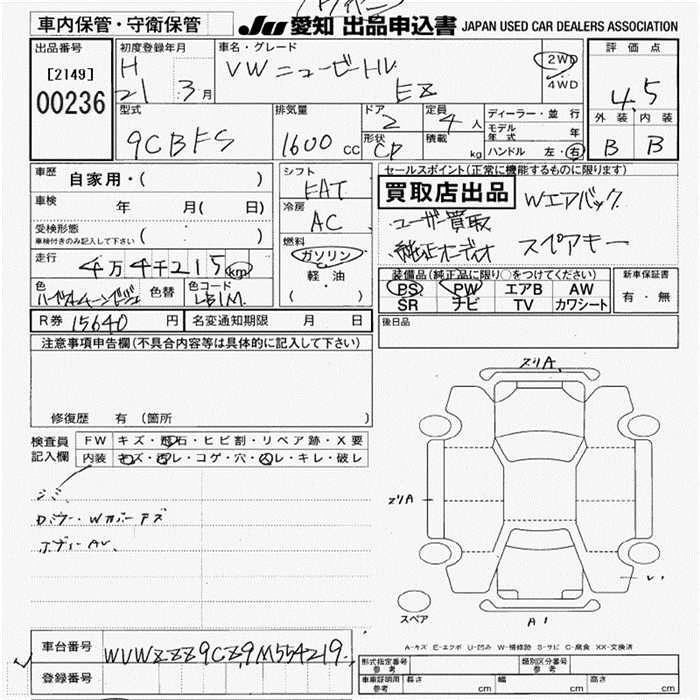 車内保管・守衛保管 JU 愛知 出品申込書 JAPAN USED CAR DEALERS ASSOCIATION
出品番号 初度登録年月 車名・グレード 評価点
[2149] H VW ニュービートル 2WD
00236 21 3月 EZ 4WD 4.5
型式 排気量 ドア 定員 ディーラー・並行 外装 内装
9CBFS 1600 CC 2 4人 モデル年式 年 B B
形状 CP 積載 kg ハンドル 左・右
車歴 自家用・( ) シフト FAT セールスポイント(正常に機能するものに限ります)
車検 年 月( 日) 冷房 AC 買取店出品 Wエアバック
受検形態 ( ) ユーザー買取
車検付きのみ記入して下さい 燃料 純正オーディオ スペアキー
走行 4万4千215km ガソリン 装備品(純正品に限り○をつけてください) 新車保証書
色 色替 色コード LB1M 軽油 PS PW エアB AW 有・無
( ) SR ナビ TV カワシート
R券 15640 円 名変通知期限 月 日 後日品
注意事項申告欄(不具合内容等は具体的に記入して下さい)
修復歴 有 (箇所 )
検査員 FW キズ・飛石・ヒビ割・リペア跡・X要
記入欄 内装 キズ・汚レ・コゲ・穴・スレ・キレ・破レ
スリA
スリA
シミ
Dミラー・Wカバーキズ
ボディーAU
スペア A1
A-キズ E-エクボ U-凹み W-補修跡 S-サビ C-腐食 XX-交換済
車台番号 WVWZZZ9CZ9M554219
登録番号
型式指定番号 参考 類別区分番号 参考
車車証明 参考 長さ cm 幅 cm 高さ cm